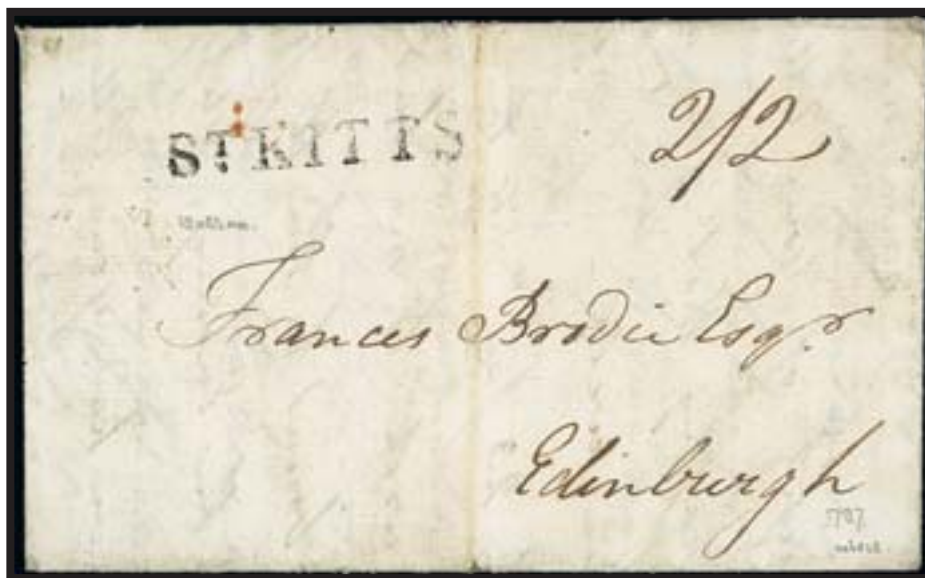 2/2
ST. KITTS
Frances Brodie Esqr
Edinburgh
1787